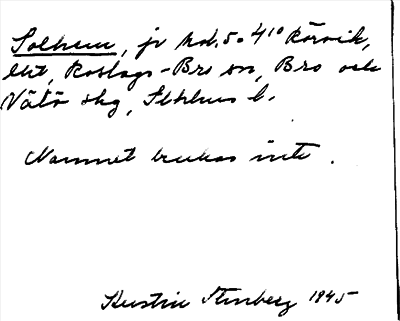 Solhem, jr nr. 5:04¹⁰ Körvik,
Roslags-Bro sn, Bro och
Vätö skg, Sthlms l.
Namnet brukas inte.
Kerstin Stenberg 1945